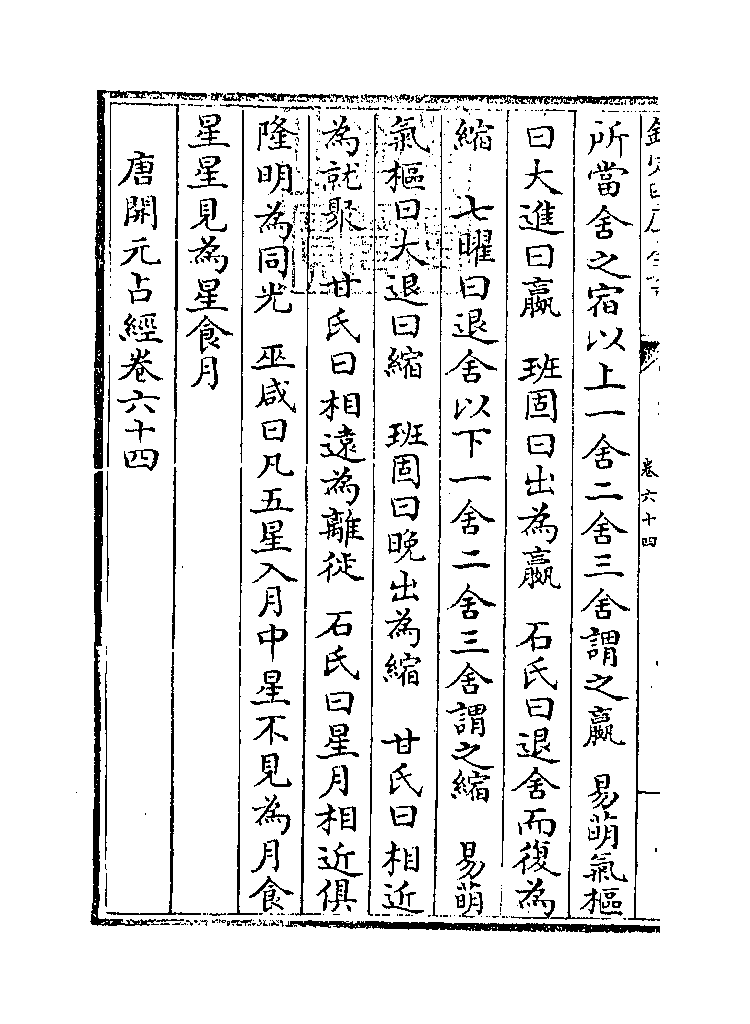 所當舍之宿以上一舍二舍三舍謂之贏　易萌氣樞
曰大進曰贏　班固曰出為贏　石氏曰退舍而復為
縮　七曜曰退舍以下一舍二舍三舍謂之縮　易萌
氣樞曰大退曰縮　班固曰晚出為縮　甘氏曰相近
為就聚　甘氏曰相遠為離徙　石氏曰星月相近俱
隆明為同光　巫咸曰凡五星入月中星不見為月食
星星見為星食月
唐開元占經卷六十四
卷六十四